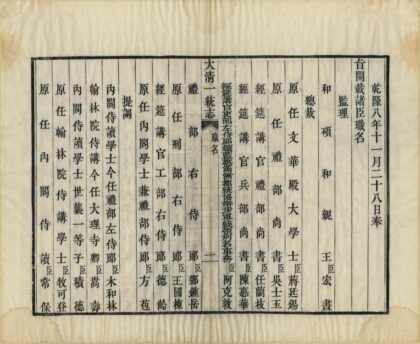 乾隆八年十一月二十八日奉
旨開載諸臣職名
監理
和碩和親王臣宏晝
總裁
原任文華殿大學士臣蔣廷錫
原任禮部尚書臣吳士玉
經筵講官禮部尚書臣任蘭枝
經筵講官兵部尚書臣陳悳華
經筵講官吏部左侍郎協辦步軍統領刑名事務臣阿克敦
大清一統志 職名 一
禮部右侍郎臣鄧鍾岳
原任刑部右侍郎臣王國棟
經筵講官工部右侍郎臣德齡
原任內閣學士兼禮部侍郎臣方苞
提調
內閣侍讀學士今任禮部左侍郎臣木和林
翰林院侍講今任大理寺卿臣嵩壽
內閣侍讀學士世襲一等子臣積德
原任翰林院侍講學士臣牧可登
原任內閣侍讀臣常保